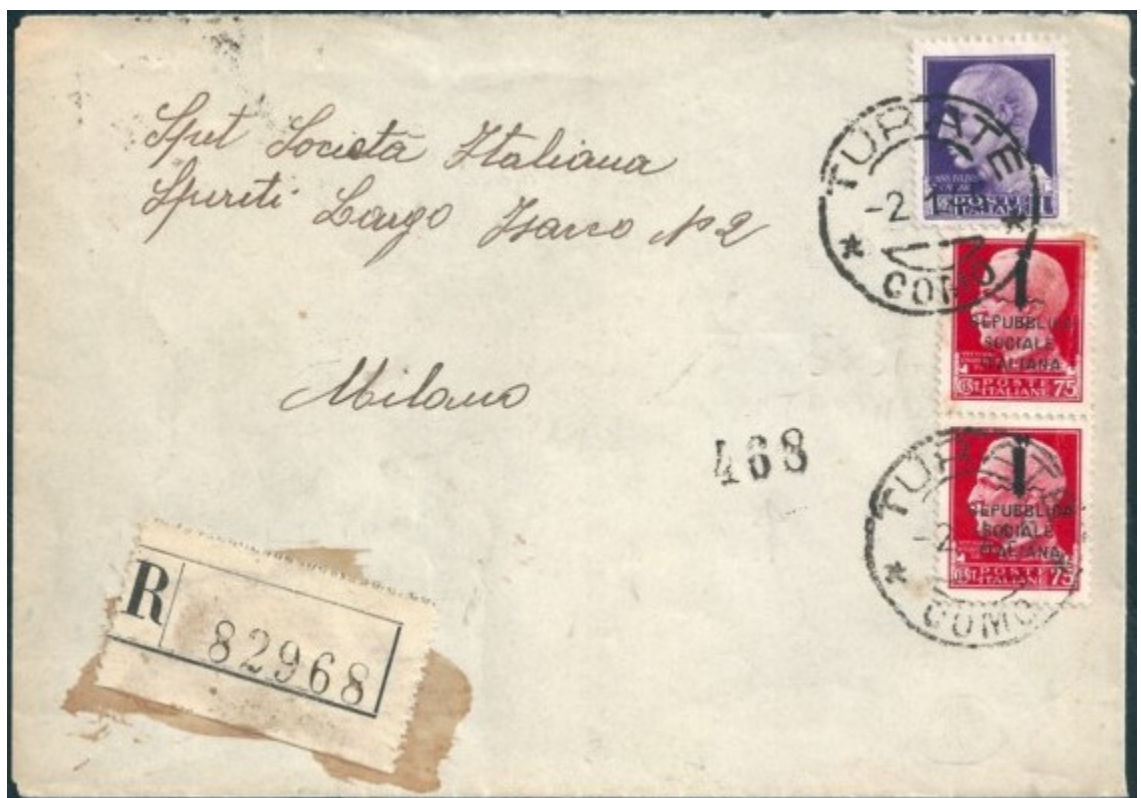 Spet Società Italiana
Spiriti Largo Isarco N° 2
Milano
468
R
82968
TURATE
-2.1
COMO
POSTE
ITALIANE
REPUBBLICA
SOCIALE
ITALIANA
POSTE
ITALIANE
75
TURATE
-2
COMO
REPUBBLICA
SOCIALE
ITALIANA
POSTE
ITALIANE
75